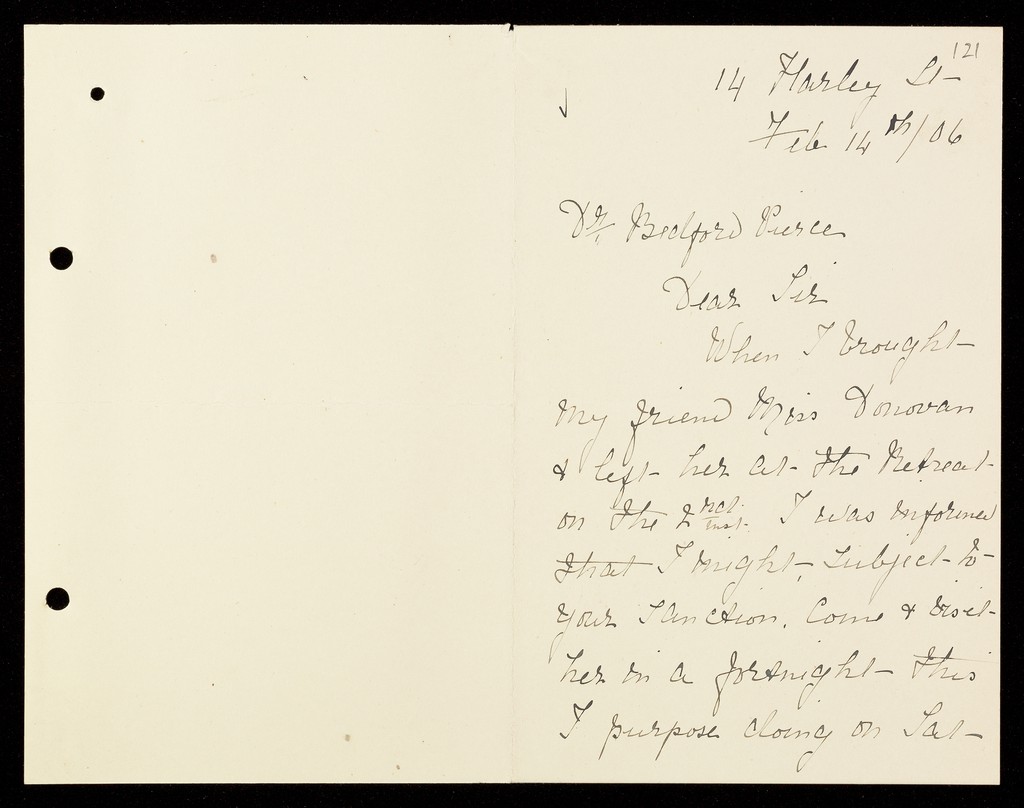 121
14 Harley St
Feb 14th/06
Dr. Bedford Pierce
Dear Sir
When I brought
my friend Miss Donovan
& left her at the Retreat
on the 2nd inst. I was informed
that I might, subject to
your sanction, come & visit
her in a fortnight this
I purpose doing on Sat-